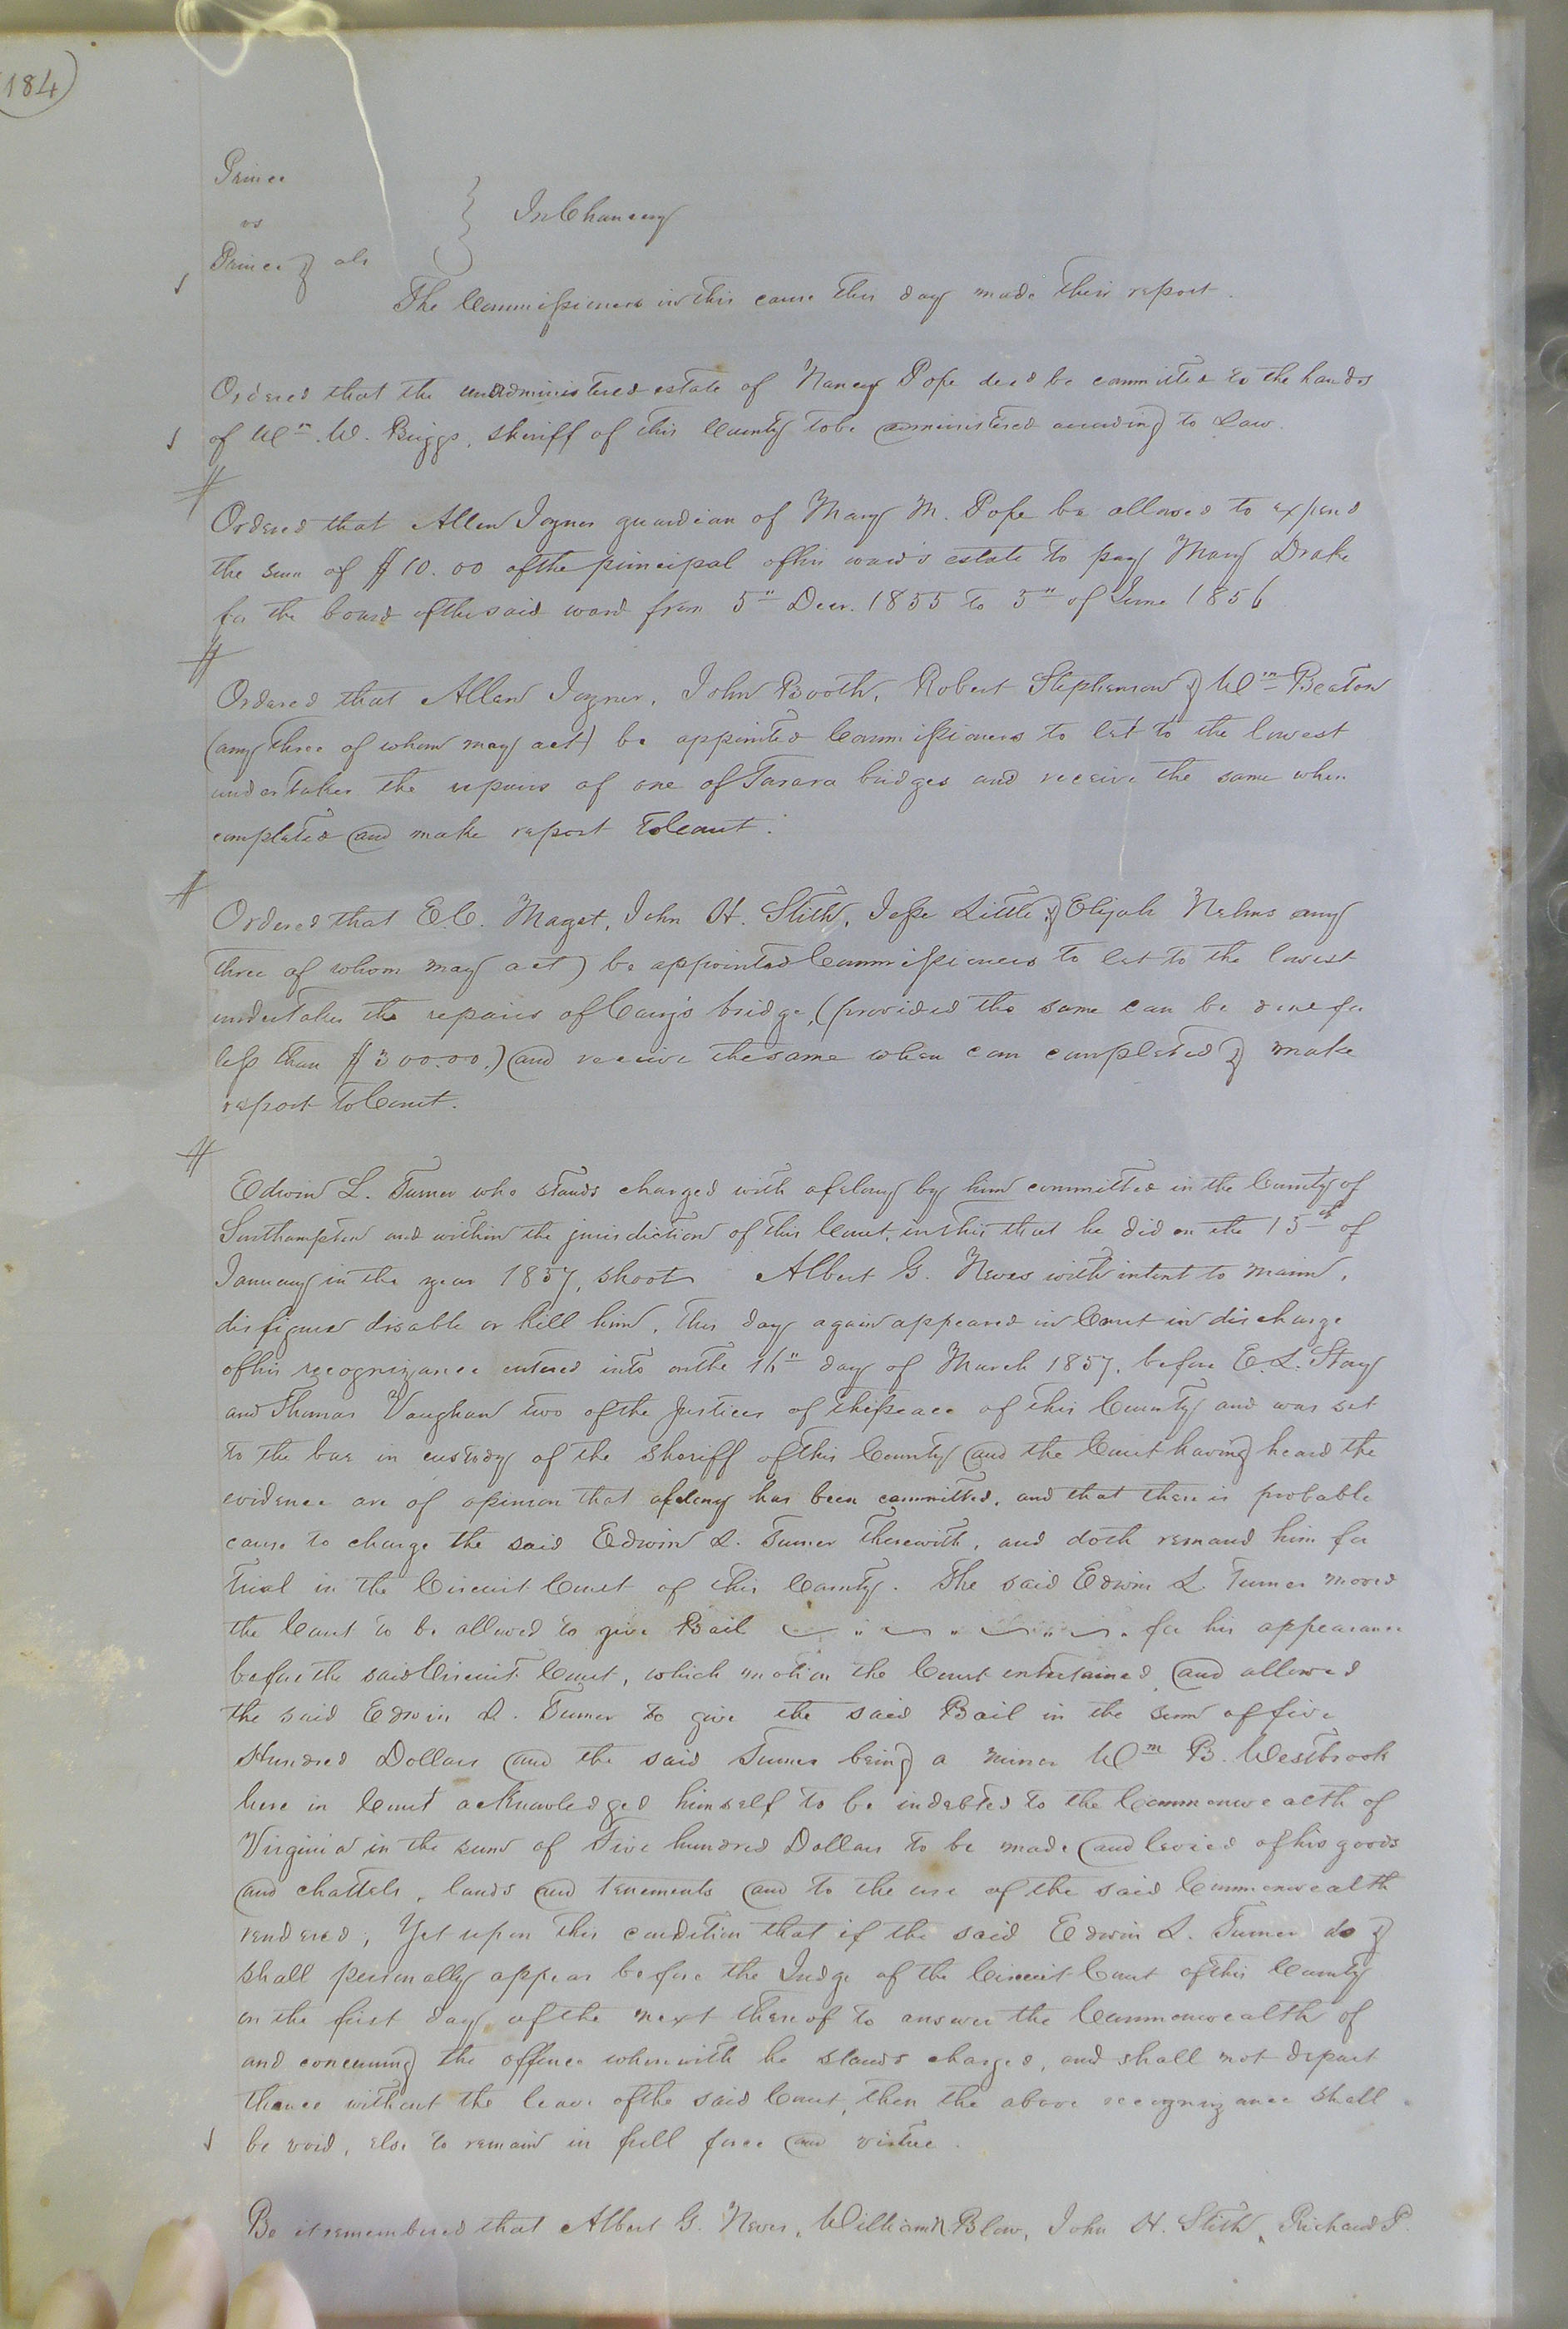 (184)
Prince
vs
Prince & als
} In Chancery
The Commissioners in this cause this day made their report.
Ordered that the unadministered estate of Nancy Pope decd be committed to the hands
of Wm. W. Briggs, sheriff of this County to be administered according to Law.
Ordered that Allen Joyner guardian of Mary M. Pope be allowed to expend
the sum of $10.00 of the principal of his ward's estate to pay Mary Drake
for the board of the said ward from 5" Decr. 1855 to 5" of June 1856
Ordered that Allen Joyner, John Booth, Robert Stephenson & Wm Beaton
(any three of whom may act) be appointed Commissioners to let to the lowest
undertaker the repairs of one of Tarara bridges and receive the same when
completed and make report to Court.
Ordered that E. C. Maget, John H. Stith, Jesse Little & Elijah Nelms any
three of whom may act) be appointed Commissioners to let to the lowest
undertaker the repairs of Cary's bridge, (provided the same can be done for
less than $300.00.) and receive the same when can completed & make
report to Court.
Edwin L. Turner who stands charged with a felony by him committed in the County of
Southampton and within the jurisdiction of this Court, in this that he did on the 15th of
January in the year 1857, shoot Albert G. Neves with intent to maim,
disfigure disable or kill him, this day again appeared in Court in discharge
of his recognizance entered into on the 16" day of March 1857, before E. L. Story
and Thomas Vaughan two of the Justices of the peace of this County and was set
to the bar in custody of the Sheriff of this County and the Court having heard the
evidence are of opinion that a felony has been committed, and that there is probable
cause to charge the said Edwin L. Turner therewith, and doth remand him for
trial in the Circuit Court of this County. The said Edwin L. Turner moved
the Court to be allowed to give Bail for his appearance
before the said Circuit Court, which motion the Court entertained and allowed
the said Edwin L. Turner to give the said Bail in the sum of five
Hundred Dollars and the said Turner being a minor Wm B. Westbrook
here in Court acknowledged himself to be indebted to the Commonwealth of
Virginia in the sum of Five hundred Dollars to be made and levied of his goods
and chattels, lands and tenements and to the use of the said Commonwealth
rendered; Yet upon this condition that if the said Edwin L. Turner do &
shall personally appear before the Judge of the Circuit Court of this County
on the first day of the next thereof to answer the Commonwealth of
and concerning the offence wherewith he stands charged, and shall not depart
thence without the leave of the said Court, then the above recognizance shall
be void, else to remain in full force and virtue.
Be it remembered that Albert G. Neves, William N Blow, John H. Stith, Richard P.